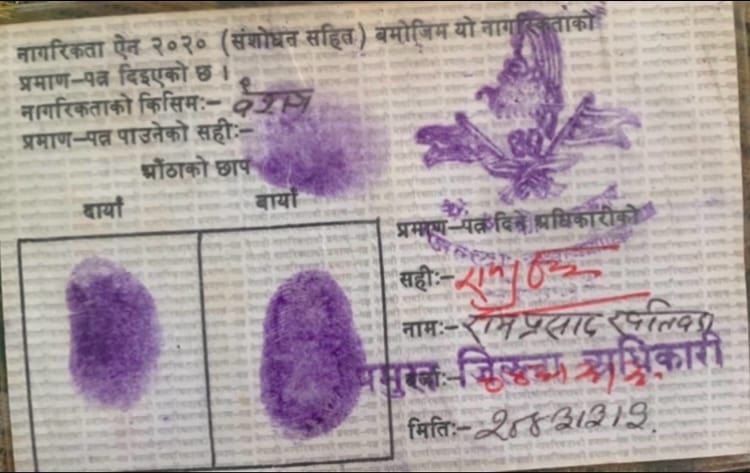 नागरिकता ऐन २०२० (संशोधन सहित) बमोजिम यो नागरिकताको
प्रमाण-पत्र दिइएको छ ।
नागरिकताको किसिम:- वंशज
प्रमाण-पत्र पाउनेको सही:-
औंठाको छाप
बायाँ
बायाँ
प्रमाण-पत्र दिने अधिकारीको
सही:-
नाम:- राम प्रसाद थपलिया
प्रमुख जिल्ला अधिकारी
दर्जा:-
मिति:- २०४३।२।३